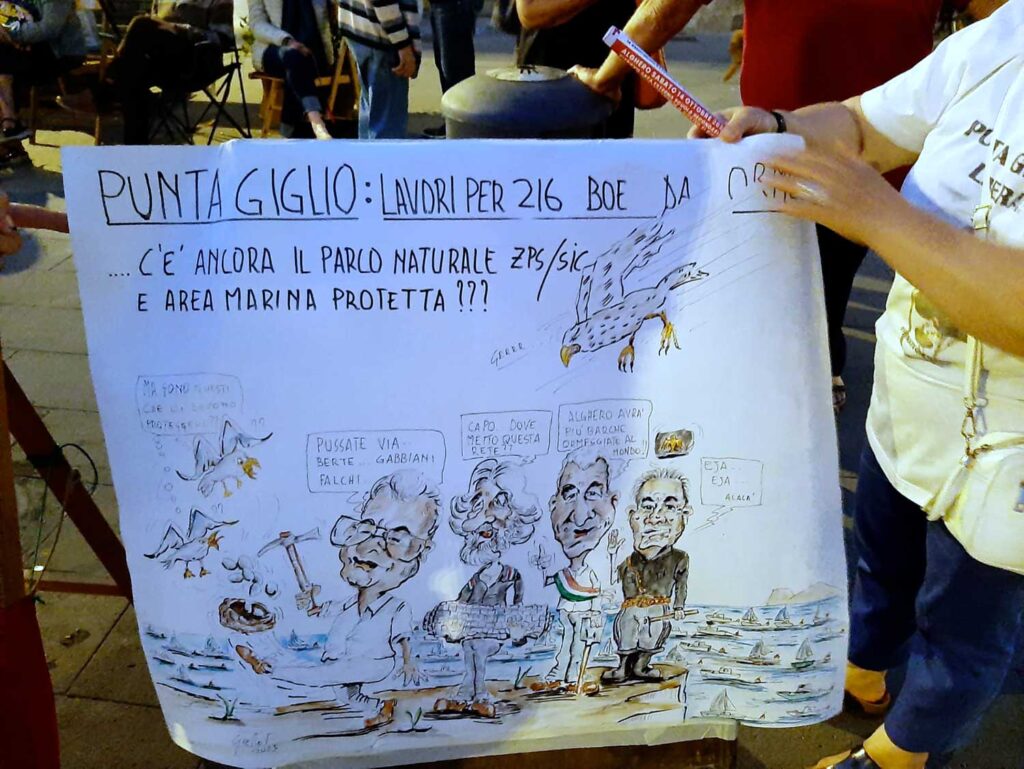 ALGHERO SABATO 14 OTTOBRE
PUNTA GIGLIO: LAVORI PER 216 BOE DA
.... C'E' ANCORA IL PARCO NATURALE ZPS/SIC
E AREA MARINA PROTETTA ???
GRRRR...
MA SONO QUESTI
CHE CI DEVONO
PROTEGGERE??
??
PUSSATE VIA..
BERTE... GABBIANI
FALCHI
CAPO. DOVE
METTO QUESTA
RETE??
ALGHERO AVRA'
PIU' BARCHE
ORMEGGIATE AL
MONDO!!
EJA...
EJA...
ALALA'